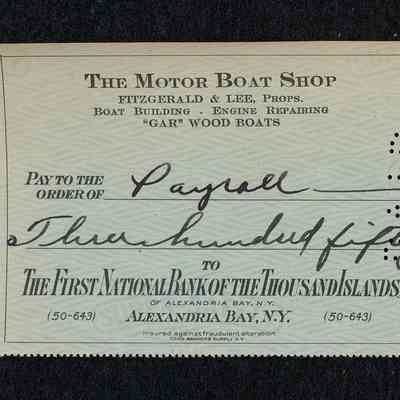 THE MOTOR BOAT SHOP
FITZGERALD & LEE, PROPS.
BOAT BUILDING - ENGINE REPAIRING
"GAR" WOOD BOATS
PAY TO THE
ORDER OF Payroll
Three hundred
TO
THE FIRST NATIONAL BANK OF THE THOUSAND ISLANDS
OF ALEXANDRIA BAY, N.Y.
(50-643) ALEXANDRIA BAY, N.Y. (50-643)
Insured against fraudulent alteration